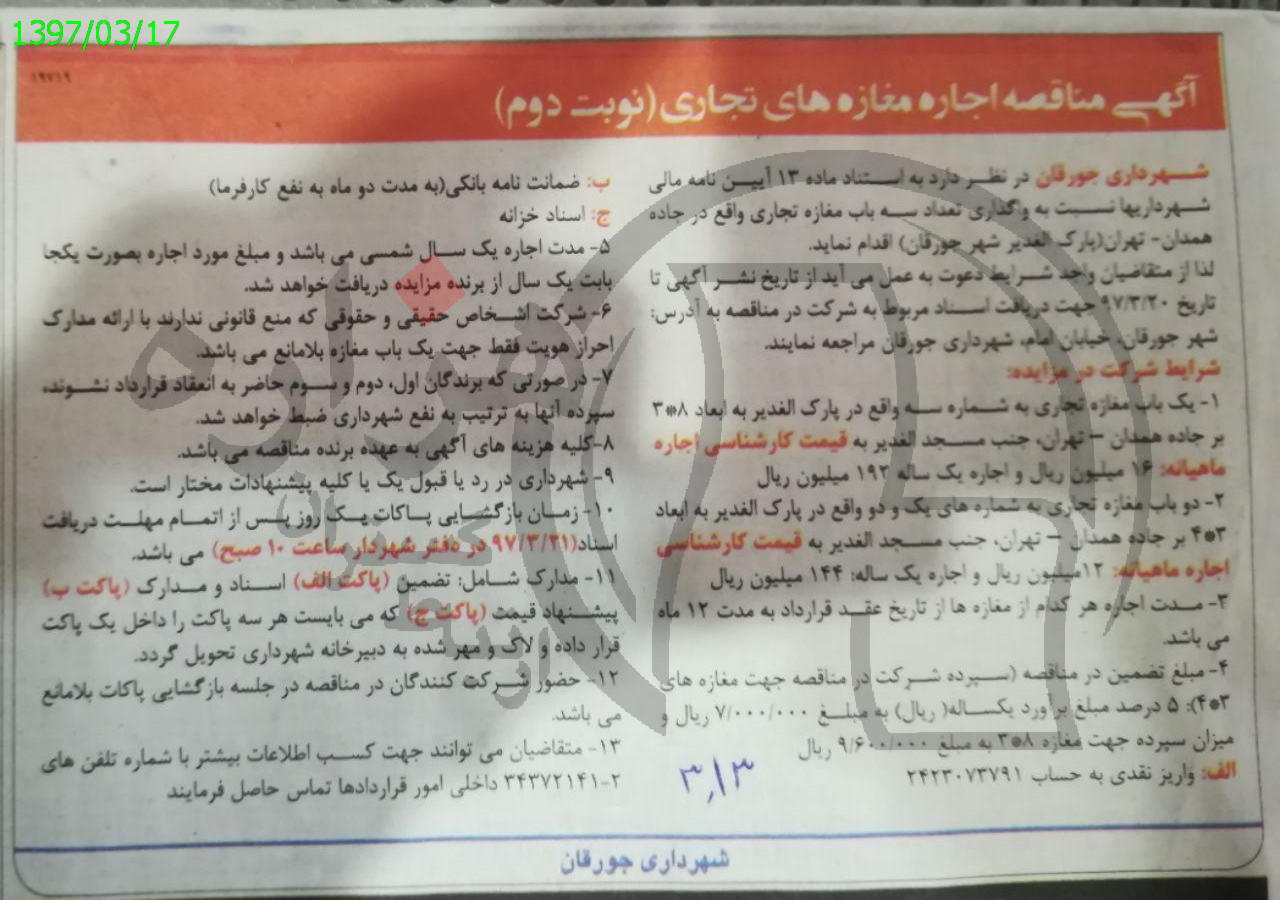 1397/03/17
۱۹۷۱۹
آگهی مناقصه اجاره مغازه های تجاری (نوبت دوم)
شـــهرداری جورقان در نظـــر دارد به اســتناد ماده ۱۳ آییــن نامه مالی
شــهرداریها نســبت به واگذاری تعداد ســه باب مغازه تجاری واقع در جاده
همدان- تهران(پارک الغدیر شهر جورقان) اقدام نماید.
لذا از متقاضیان واجد شــرایط دعوت به عمل می آید از تاریخ نشــر آگهی تا
تاریخ ۹۷/۳/۲۰ جهت دریافت اسناد مربوط به شرکت در مناقصه به آدرس:
شهر جورقان، خیابان امام، شهرداری جورقان مراجعه نمایند.
شرایط شرکت در مزایده:
۱- یک باب مغازه تجاری به شــماره ســه واقع در پارک الغدیر به ابعاد ۸*۳
بر جاده همدان – تهران، جنب مســجد الغدیر به قیمت کارشناسی اجاره
ماهیانه: ۱۶ میلیون ریال و اجاره یک ساله ۱۹۲ میلیون ریال
۲- دو باب مغازه تجاری به شماره های یک و دو واقع در پارک الغدیر به ابعاد
۳*۴ بر جاده همدان – تهران، جنب مســجد الغدیر به قیمت کارشناسی
اجاره ماهیانه: ۱۲میلیون ریال و اجاره یک ساله: ۱۴۴ میلیون ریال
۳- مــدت اجاره هر کدام از مغازه ها از تاریخ عقــد قرارداد به مدت ۱۲ ماه
می باشد.
۴- مبلغ تضمین در مناقصه (ســپرده شــرکت در مناقصه جهت مغازه های
۳*۴): ۵ درصد مبلغ برآورد یکســاله( ریال) به مبلــغ ۷/۰۰۰/۰۰۰ ریال و
میزان سپرده جهت مغازه ۸*۳ به مبلغ ۹/۶۰۰/۰۰۰ ریال
الف: واریز نقدی به حساب ۲۴۲۳۰۷۳۷۹۱
۳,۱۳
ب: ضمانت نامه بانکی(به مدت دو ماه به نفع کارفرما)
ج: اسناد خزانه
۵- مدت اجاره یک ســال شمسی می باشد و مبلغ مورد اجاره بصورت یکجا
بابت یک سال از برنده مزایده دریافت خواهد شد.
۶- شرکت اشــخاص حقیقی و حقوقی که منع قانونی ندارند با ارائه مدارک
احراز هویت فقط جهت یک باب مغازه بلامانع می باشد.
۷- در صورتی که برندگان اول، دوم و ســوم حاضر به انعقاد قرارداد نشــوند،
سپرده آنها به ترتیب به نفع شهرداری ضبط خواهد شد.
۸-کلیه هزینه های آگهی به عهده برنده مناقصه می باشد.
۹- شهرداری در رد یا قبول یک یا کلیه پیشنهادات مختار است.
۱۰- زمــان بازگشــایی پــاکات یــک روز پــس از اتمــام مهلــت دریافت
اسناد(۹۷/۳/۲۱ در دفتر شهردار ساعت ۱۰ صبح) می باشد.
۱۱- مدارک شــامل: تضمین (پاکت الف) اســناد و مــدارک (پاکت ب)
پیشــنهاد قیمت (پاکت ج) که می بایست هر سه پاکت را داخل یک پاکت
قرار داده و لاک و مهر شده به دبیرخانه شهرداری تحویل گردد.
۱۲- حضور شــرکت کنندگان در مناقصه در جلسه بازگشایی پاکات بلامانع
می باشد.
۱۳- متقاضیان می توانند جهت کســب اطلاعات بیشتر با شماره تلفن های
۲-۳۴۳۷۲۱۴۱ داخلی امور قراردادها تماس حاصل فرمایند
شهرداری جورقان
هزاره